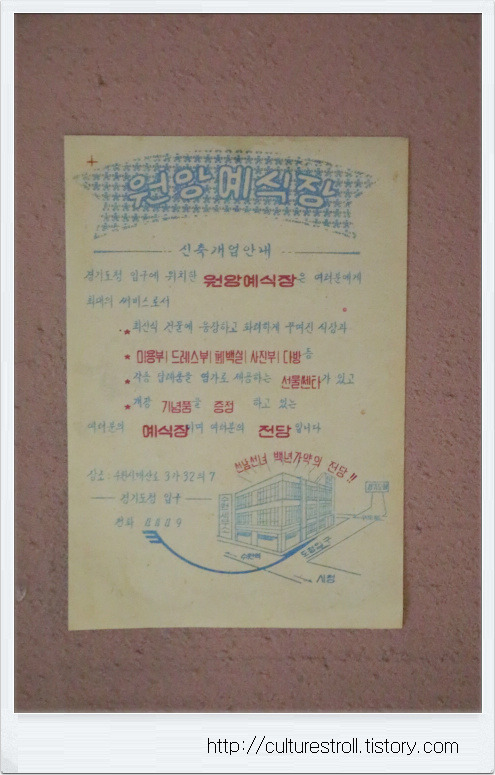 원앙예식장
신축개업안내
경기도청 입구에 위치한 원앙예식장은 여러분에게
최대의 써비스로서
★ 최신식 건물에 웅장하고 화려하게 꾸며진 식장과
★ 미용부| 드레스부| 폐백실| 사진부| 다방등
★ 각종 답례품을 염가로 제공하는 선물쎈타가 있고
★ 개장 기념품을 증정 하고 있는
여러분의 예식장이며 여러분의 전당 입니다
선남선녀 백년가약의 전당!!
3가 92의 7
경기도청 입구
전화 8889
수원역
도청입구
시청
http://culturestroll.tistory.com